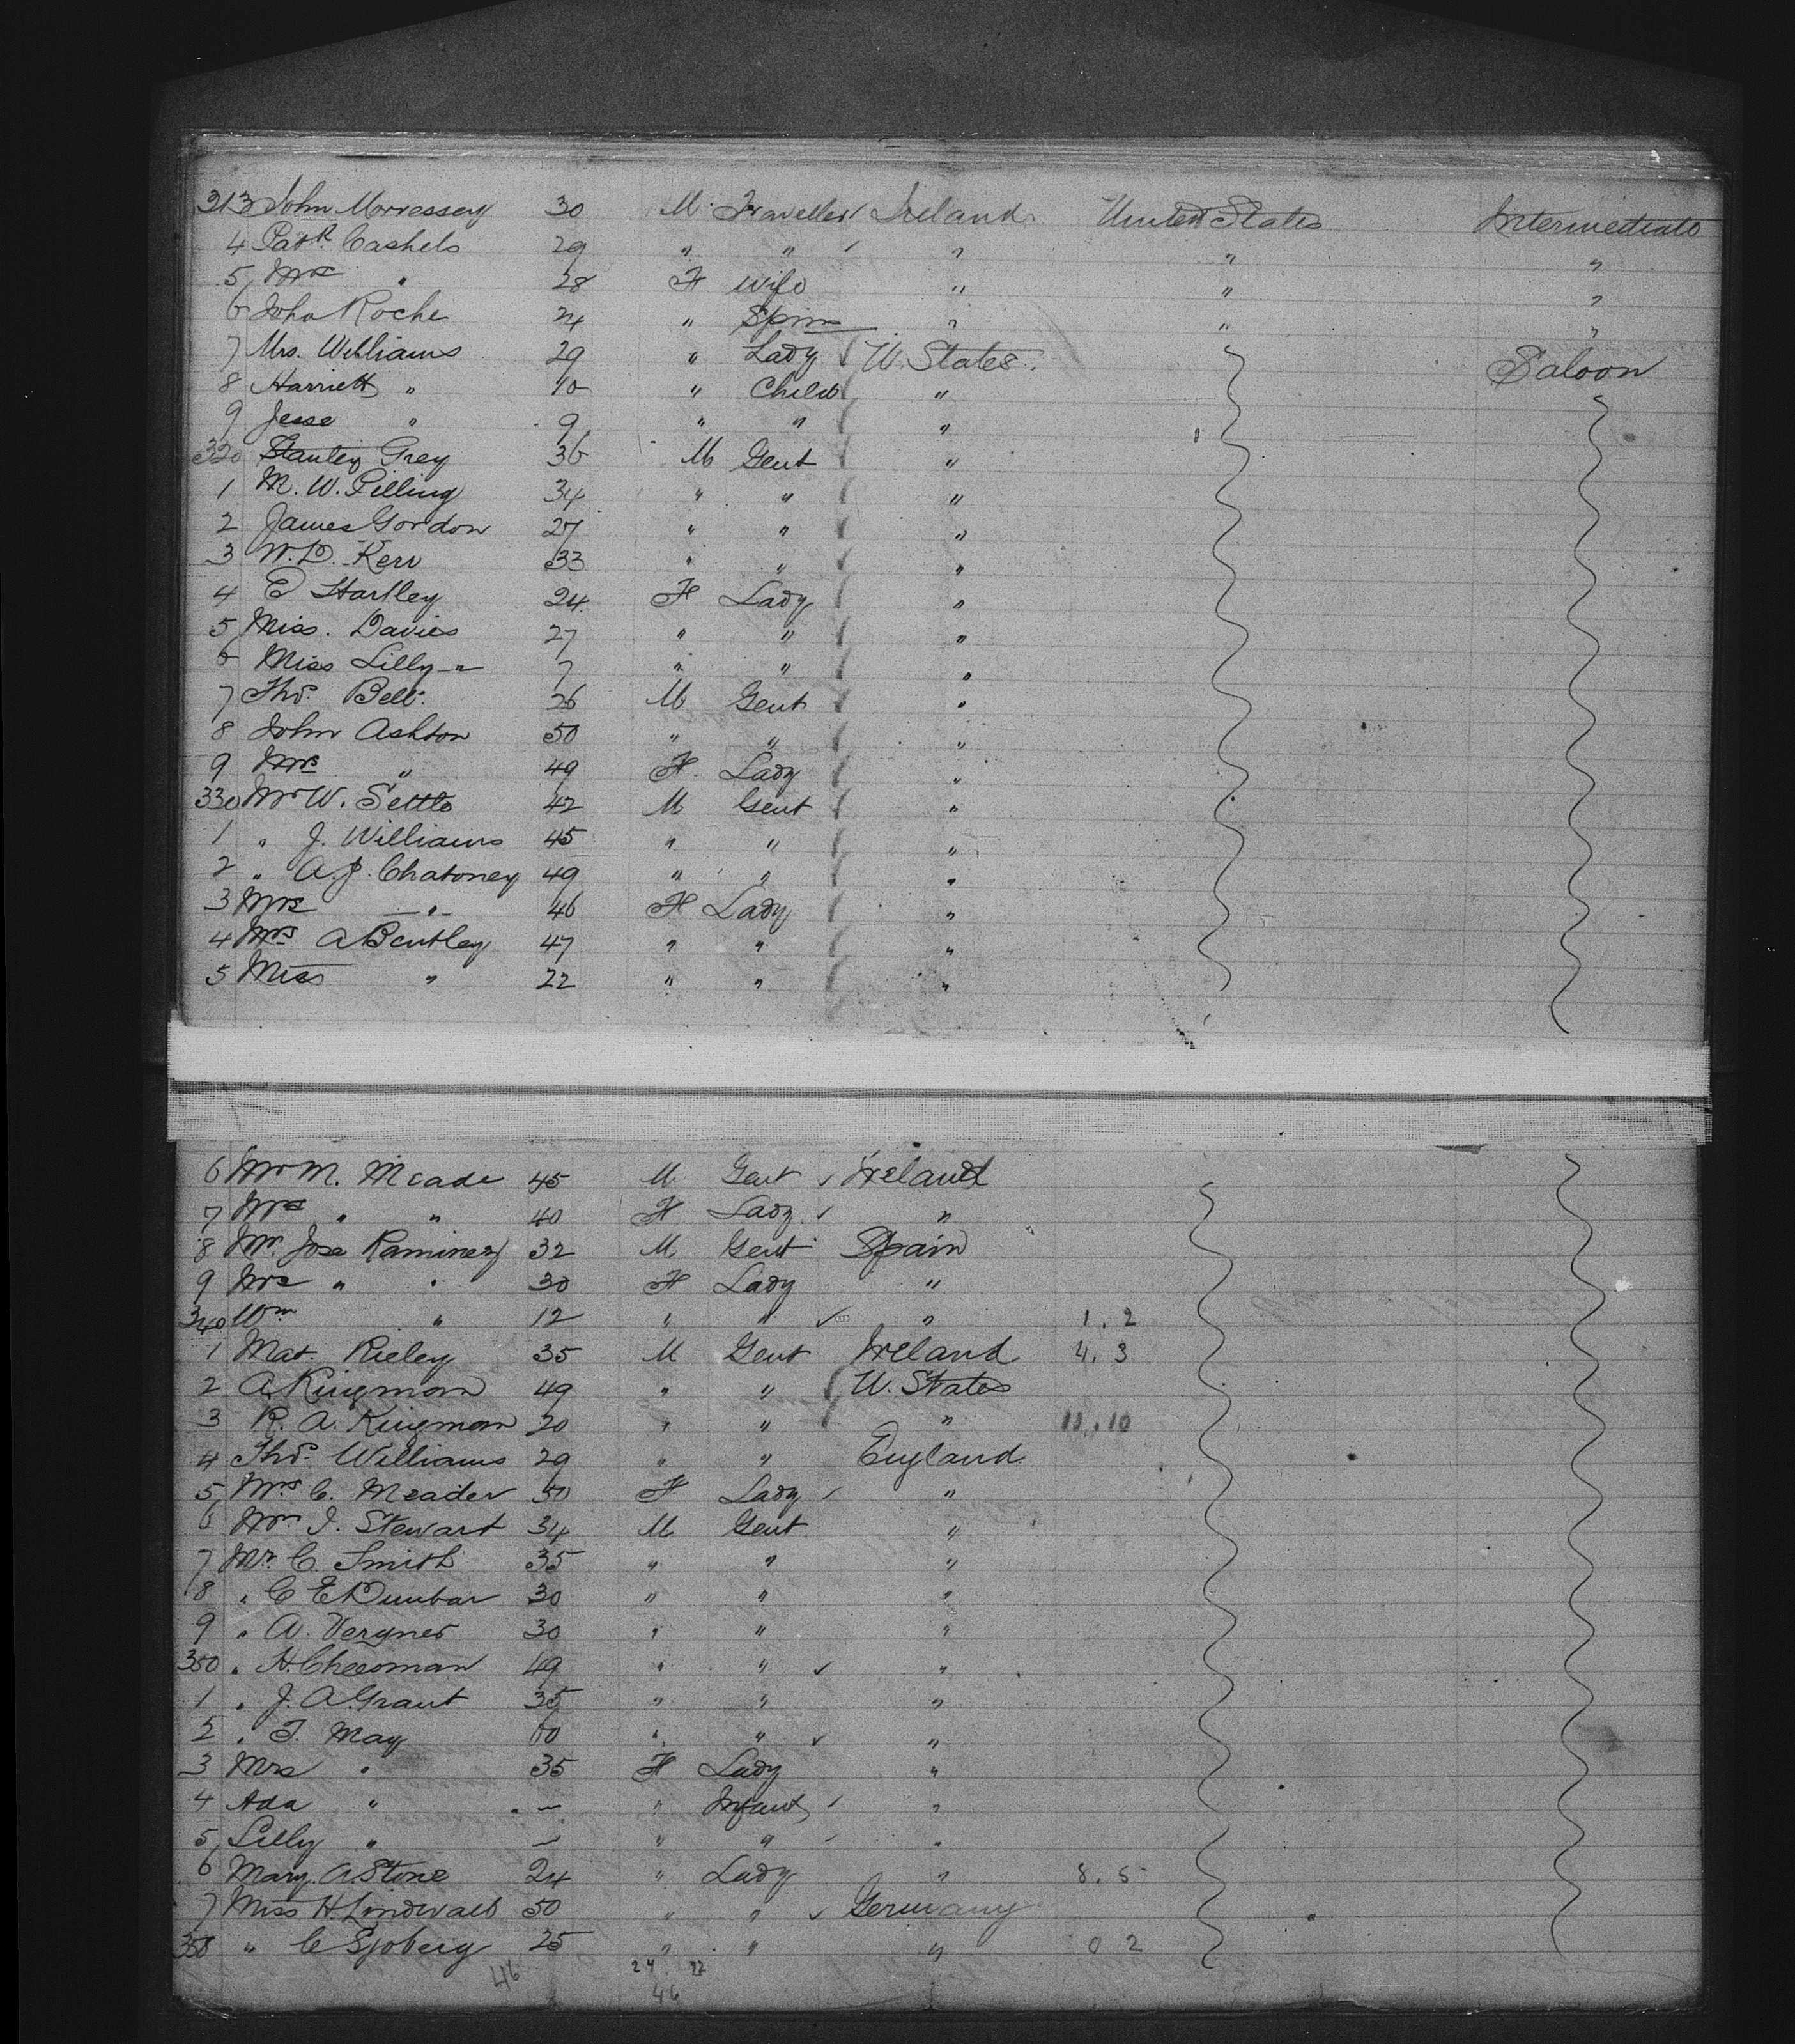 313 John Morressey 30 M Traveller Ireland United States Intermediate
4 Patk Cashels 29 " " " " "
5 Mrs " 28 F Wife " " "
6 Joha Roche 24 " Spin " " "
7 Mrs. Williams 29 " Lady U. States. Saloon
8 Harriett " 10 " Child "
9 Jesse " 9 " " "
320 Stanley Grey 36 M Gent "
1 M. W. Pilling 34 " " "
2 James Gordon 27 " " "
3 W. D. Kerr 33 " " "
4 E Hartley 24 F Lady "
5 Miss. Davies 27 " " "
6 Miss Lilly " 7 " " "
7 Thos. Bell. 26 M Gent "
8 John Ashton 50 " " "
9 Mrs " 49 F Lady "
330 Mr W. Settle 42 M Gent "
1 " J. Williams 45 " " "
2 " A. J. Chatoney 49 " " "
3 Mrs " 46 F Lady "
4 Mrs A Bentley 47 " " "
5 Miss " 22 " " "
6 Mr M. Meade 45 M Gent Ireland
7 Mrs " " 40 F Lady "
8 Mr. Jose Raminez 32 M Gent Spain
9 Mrs " " 30 F Lady "
340 Wm " 12 " " " 1, 2
1 Mat. Rieley 35 M Gent Ireland 4, 3
2 A Kingmom 49 " " U. States
3 R. A. Kingmom 20 " " " 11, 10
4 Thos. Williams 29 " " England
5 Mrs C. Meader 50 F Lady "
6 Wm J. Stewart 34 M Gent "
7 Mr. C. Smith 35 " " "
8 " C E Dunbar 30 " " "
9 " A. Verynes 30 " " "
350 " H. Cheesman 49 " " "
1 " J. A Grant 35 " " "
2 " T. May 60 " " "
3 Mrs " 35 F Lady "
4 Ada " — " Infant "
5 Lilly " — " " "
6 Mary. A Stone 24 " Lady " 8, 5
7 Miss H. Lindwall 50 " " Germany
358 " C Sjoberg 25 " " " 0 2
46 24 22
46